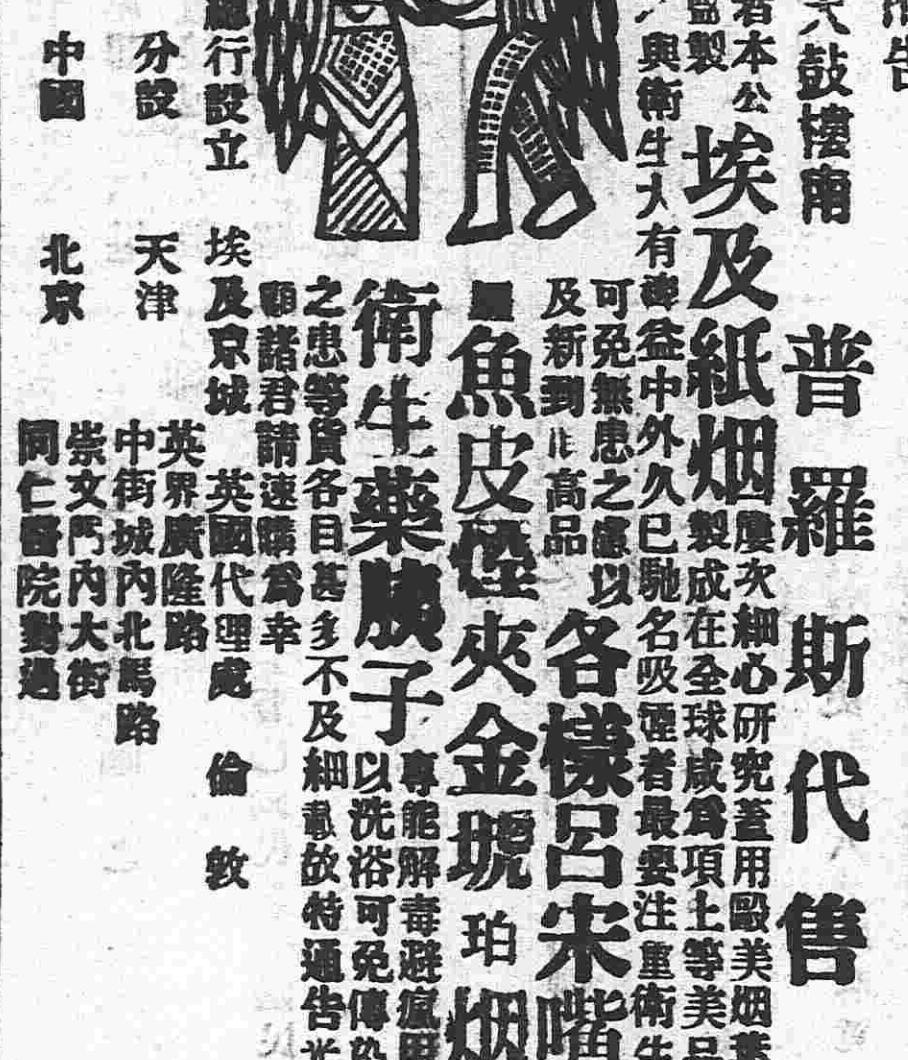 告
鼓樓南
普羅斯代售
者本公
埃及紙烟
屢次細心研究蓋用毆美烟葉
製
製成在全球咸為項上等美品
與衛生人有裨益中外久已馳名吸煙者最要注重衛生
可免無患之慮以
及新到 高品
各樣呂宋嘴
魚皮煙夾金琥珀烟
衛生藥胰子
專能解毒避瘟
以洗浴可免傳染
之患等貨各目甚多不及細 故特通告光
顧諸君請速購為幸
總行設立 埃及京城 英國代理處 倫敦
分設 天津 英界廣隆路
中街城內北馬路
中國 北京 崇文門內大街
同仁醫院對過